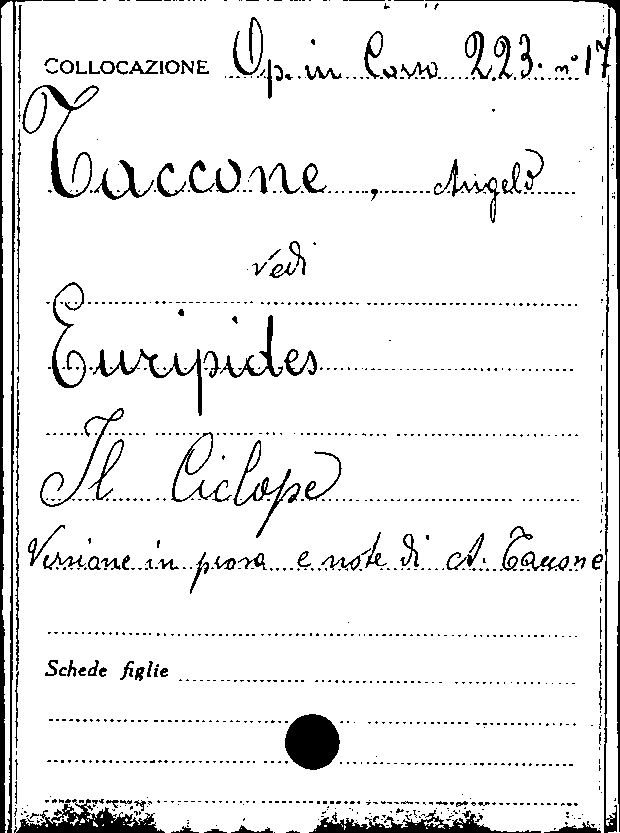 COLLOCAZIONE Op. in Corso 223. n° 17
Taccone, Angelo
vedi
Euripides
Il Ciclope
Versione in prosa e note di A. Taccone
Schede figlie